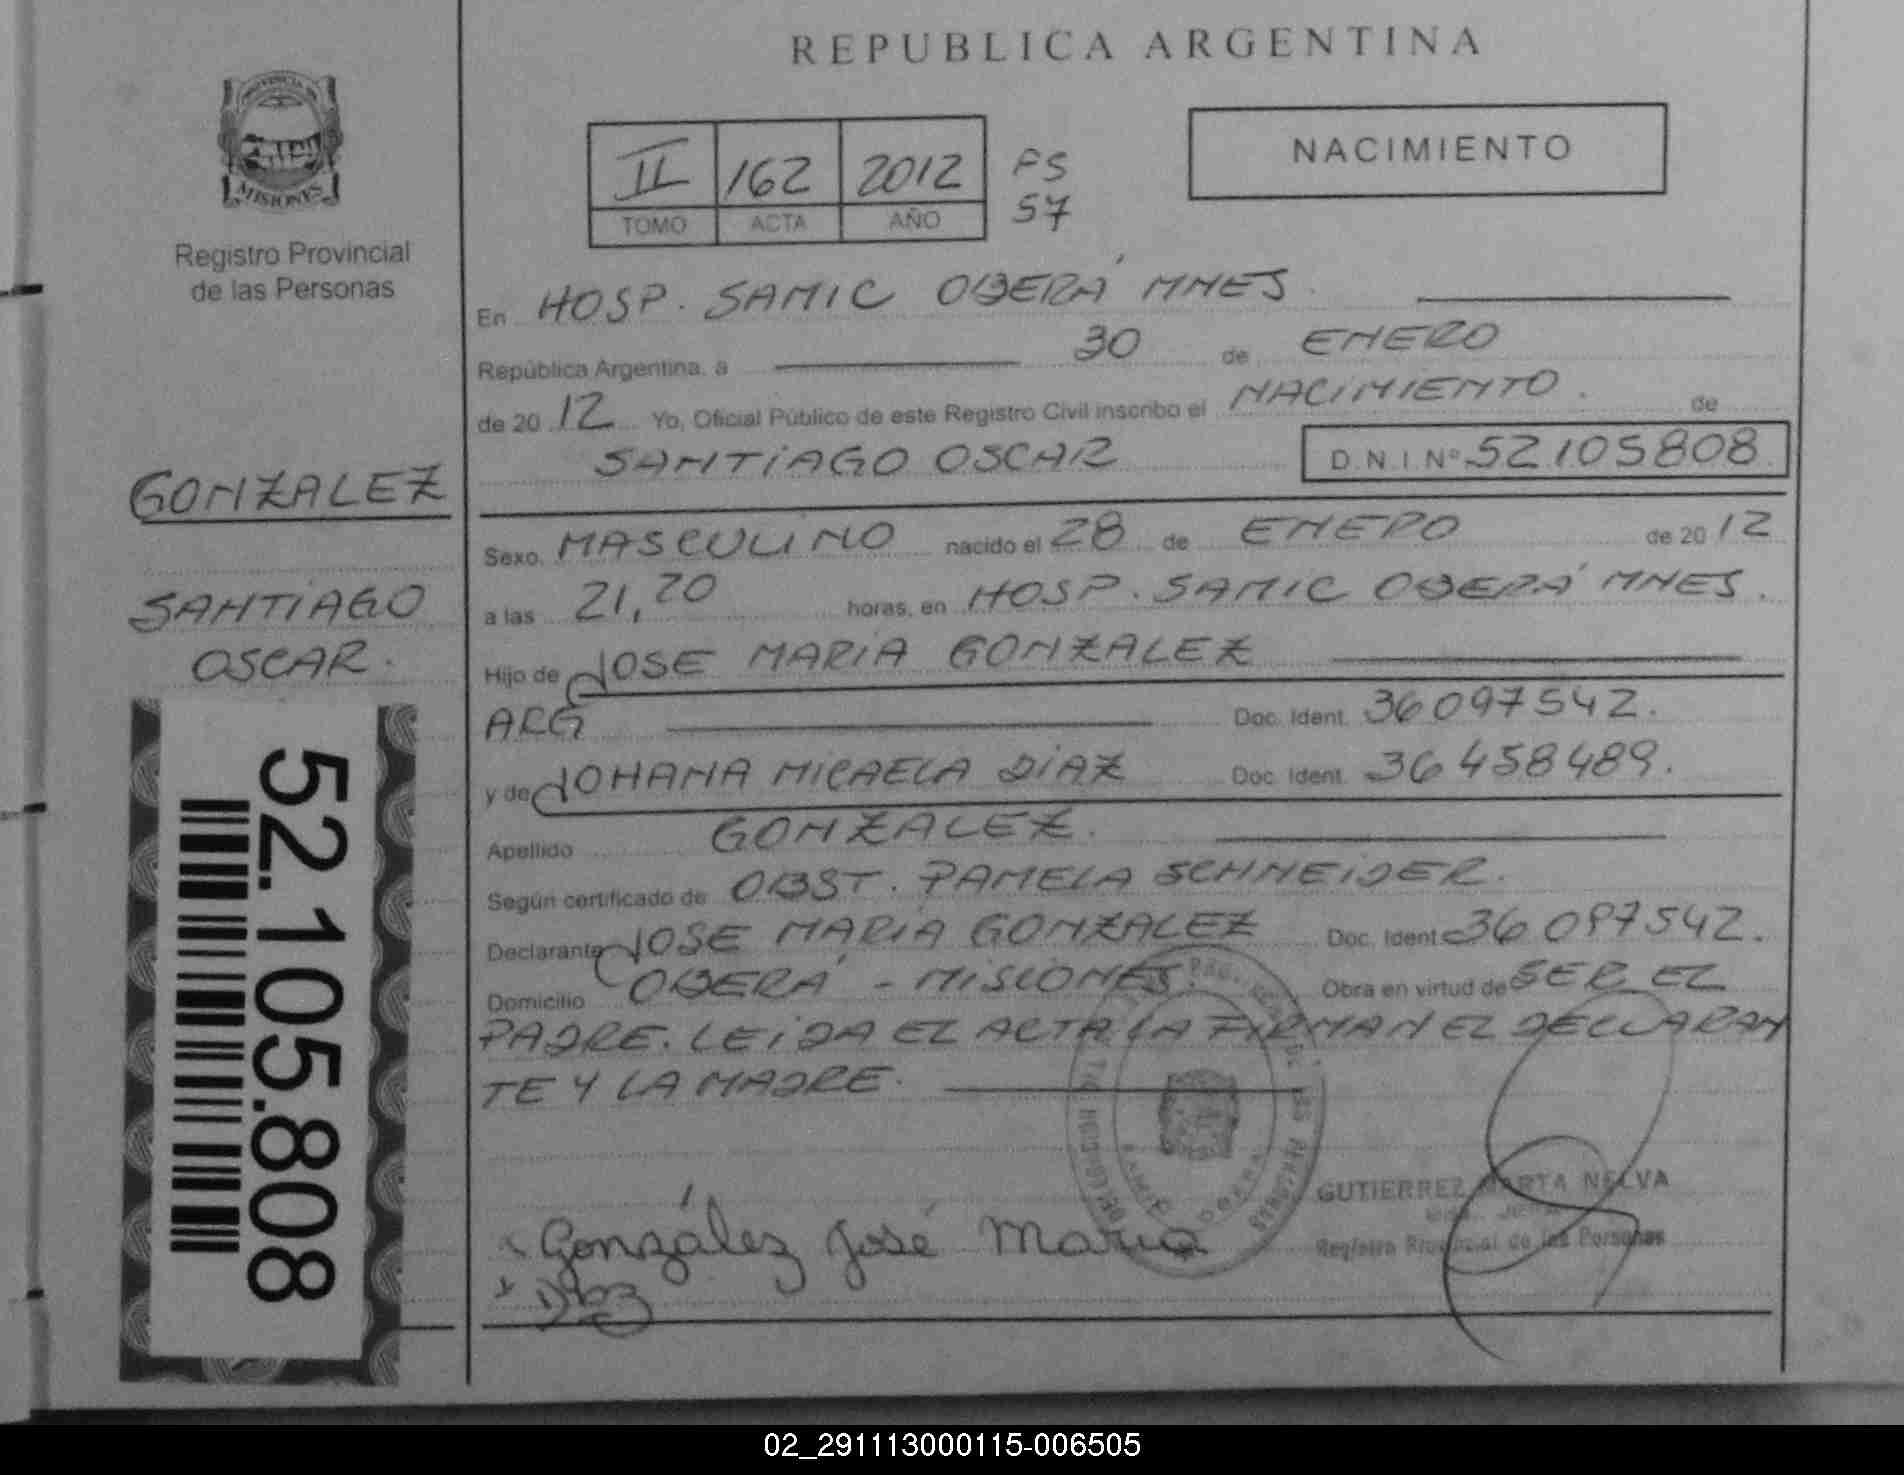 REPUBLICA ARGENTINA
PROVINCIA DE
MISIONES
Registro Provincial
de las Personas
II 162 2012 FS
TOMO ACTA AÑO 57
NACIMIENTO
En HOSP. SAMIC OBERÁ MNES.
República Argentina, a 30 de ENERO
de 2012 Yo, Oficial Público de este Registro Civil inscribo el NACIMIENTO. de
SANTIAGO OSCAR D.N.I. Nº 52105808
GONZALEZ
SANTIAGO
OSCAR.
52.105.808
Sexo. MASCULINO nacido el 28 de ENERO de 2012
a las 21,20 horas, en HOSP. SAMIC OBERÁ MNES.
Hijo de JOSE MARIA GONZALEZ
ARG Doc. Ident. 36097542.
y de JOHANA MICAELA DIAZ Doc. Ident. 36458489.
Apellido GONZALEZ.
Según certificado de OBST. PAMELA SCHNEIDER.
Declarante JOSE MARIA GONZALEZ Doc. Ident. 36097542.
Domicilio OBERÁ - MISIONES. Obra en virtud de SER EL
PADRE. LEIDA EL ACTA LA FIRMAN EL DECLARAN
TE Y LA MADRE.
GUTIERREZ MARTA NELVA
Registro Provincial de las Personas
González José Maria
Diaz
02_291113000115-006505